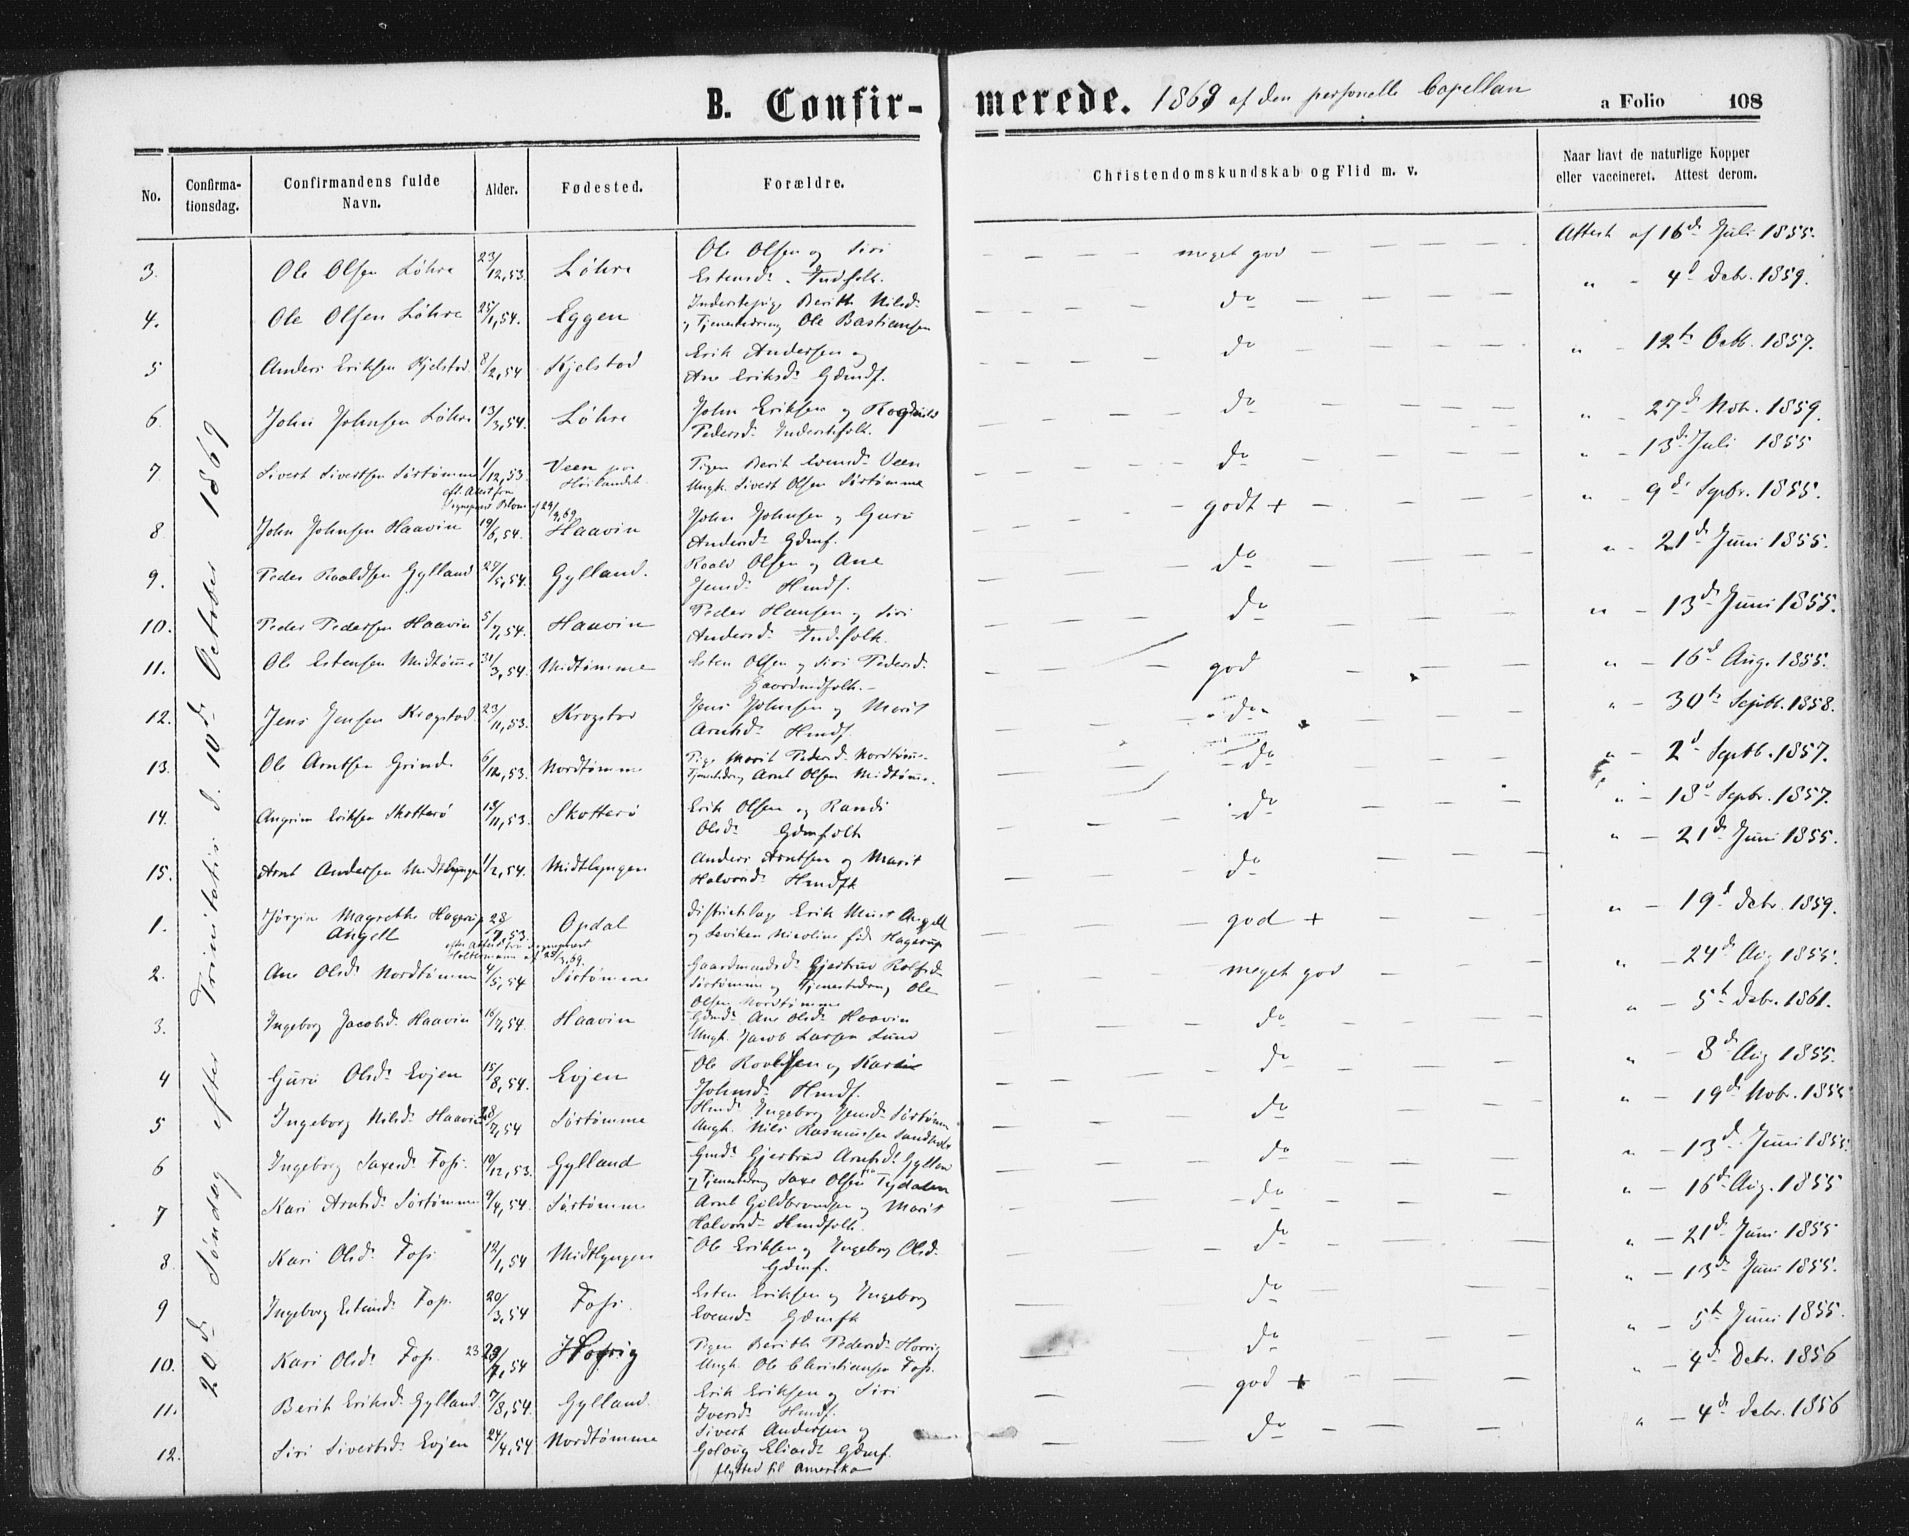 B. Confir- merede. 1869 af den personelle Capellan a Folio 108
No. Confirma- tionsdag. Confirmandens fulde Navn. Alder. Fødested. Forældre. Christendomskundskab og Flid m. v. Naar havt de naturlige Kopper eller vaccineret. Attest derom.
20de Søndag efter Trinitatis d. 10de October 1869
3. Ole Olsen Løhre 23/12,53. Løhre Ole Olsen og Siri meget god Attest af 16de Juli 1855.
Estensd. Indfolk.
4. Ole Olsen Løhre 25/1,54. Eggen Inderstepige Berith Nilsd. do " 4d Debr. 1859.
og Tjenestedreng Ole Bastiansen
5 Anders Eriksen Kjelstad 8/2,54 Kjelstad Erik Andersen og do " 12te Octb. 1857.
Ane Eriksd. Gdmdf.
6 John Johnsen Løhre 13/3,54. Løhre John Eriksen og Ragnild do " 27de Nov. 1859.
Pedersd. Inderstfolk.
7 Sivert Sivertsen Sørtømme 1/12,53 Veen paa Høilandet Pigen Berit Evensd. Veen do " 13de Juli 1855
Ungk. Sivert Olsen Sørtømme
8 John Johnsen Haavin 19/6,54. Haavin John Johnsen og Guru godt + " 9de Sepbr. 1855.
Andersd. Gdmf.
9. Peder Roaldsen Gylland 27/5,54. Gylland. Roald Olsen og Ane do " 21de Juni 1855.
Jensd. Hmdf.
10. Peder Pedersen Haavin 5/7,54. Haavin Peder Hansen og Siri do " 13de Juni 1855.
Andersd. Indfolk.
11. Ole Estensen Midtømme 31/3,54. Midtømme Esten Olsen og Siri Pedersd. god " 16de Aug. 1855.
Gaardmdfolk.
12. Jens Jensen Krogstad 23/11,53. Krogstad Jens Johnsen og Marit do " 30te Septb. 1858.
Arntsd. Hmdf.
13. Ole Arntsen Grind 6/12,53. Nordtømme Pige Marit Pedersd. Nordtømme do " 2d Septb. 1857.
Tjenestedreng Arnt Olsen Midtømme.
14. Angrim Eriksen Skotterø 18/11,53. Skotterø Erik Olsen og Randi do " 18de Sepbr. 1857.
Olsd. Gdmfolk
15. Arnt Andersen Midtlyngen 1/2,54. Midtlyngen Anders Arntsen og Marit do " 21de Juni 1855.
Halvorsd. Hmdfk
1. Jørgine Magrethe Hagerup Angell 28/7,53. Opdal Districtslæge Erik Must Angell god + " 19d Debr. 1859.
og Leviken Nicoline født Hagerup
2. Ane Olsd. Nordtømme 4/5,54 Sørtømme Gaardmandsd. Gjertrud Rolfsd. meget god " 24de Aug 1855.
Sørtømme og Tjenestedreng Ole
Olsen Nordtømme
3. Ingeborg Jacobsd. Haavin 16/7,54. Haavin Gdmd. Ane Olsd. Haavin do " 5te Debr. 1861.
Ungk. Jacob Larsen Lund
4 Guru Olsd. Evjen 15/8,54. Evjen Ole Roaldsen og Kari do " 8de Aug 1855.
Johnsd. Hmdf.
5 Ingeborg Nilsd. Haavin 28/7,54 Sørtømme Hmd. Ingeborg Jensd. Sørtømme do " 19de Nobr. 1855
Ungk. Nils Rasmussen
6 Ingeborg Saxesd. Fos. 19/12,53. Gylland Gmd. Gjertrud Arntsd. Gylland do " 13de Juni 1855.
og Tjenestedreng Saxe Olsen fra Tydalen
7 Kari Arntsd. Sørtømme 9/4,54. Sørtømme Arnt Guldbrandsen og Marit do " 16de Aug. 1855
Halvorsd. Hmdfolk.
8. Kari Olsd. Fos. 12/1,54 Midtlyngen Ole Eriksen og Ingeborg Olsd. do " 21de Juni 1855
Gdmf.
9 Ingeborg Estensd. Fos. 20/3,54 Fos. Esten Eriksen og Ingeborg do " 13de Juni 1855.
Evensd. Gdmfk
10. Kari Olsd. Fos. 23 29/7,54 Hovrig Pigen Berith Pedersd. Horrig do " 5te Juni 1855.
Ungk. Ole Christiansen Fos.
11. Berit Eriksd. Gylland 7/8,54. Gylland. Erik Eriksen og Siri god + " 4de Debr. 1856
Iversd. Hmdf.
12. Siri Sivertsd. Evjen 24/4,54 Nordtømme Sivert Andersen og do " 4de Debr. 1856
Golaug Eliasd. Gdmf.
flytted til Amerika